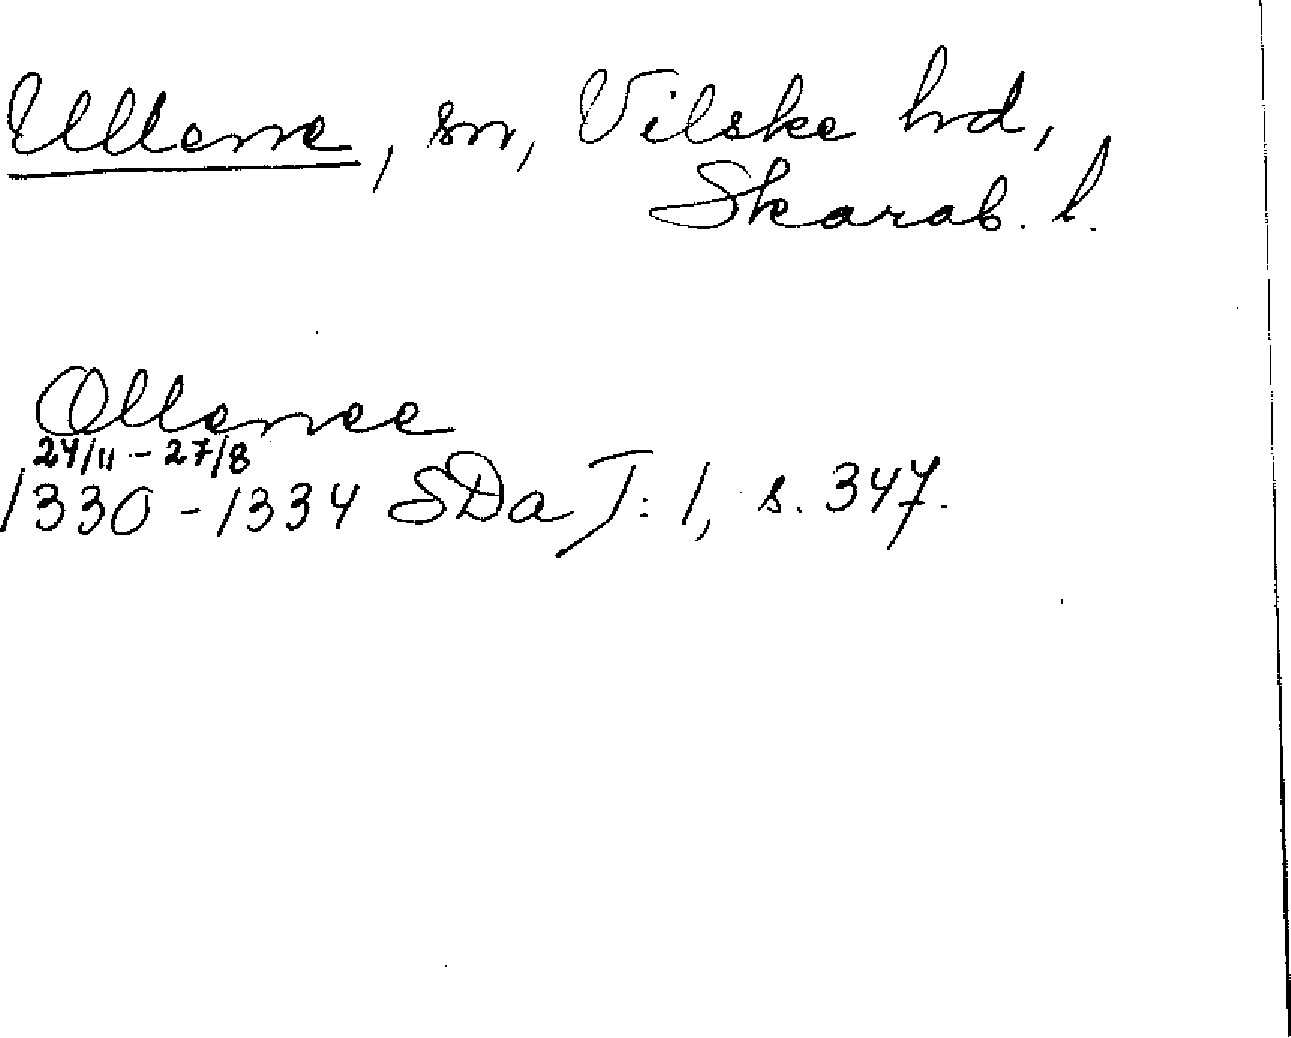 Ullene, sn, Vilske hd,
Skarab. l.
Ollenee
24/11 - 27/8
1330 - 1334 SDa J: 1, s. 347.